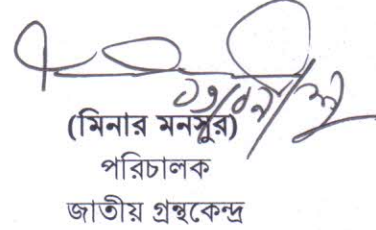 (মিনার মনসুর)
পরিচালক
জাতীয় গ্রন্থকেন্দ্র